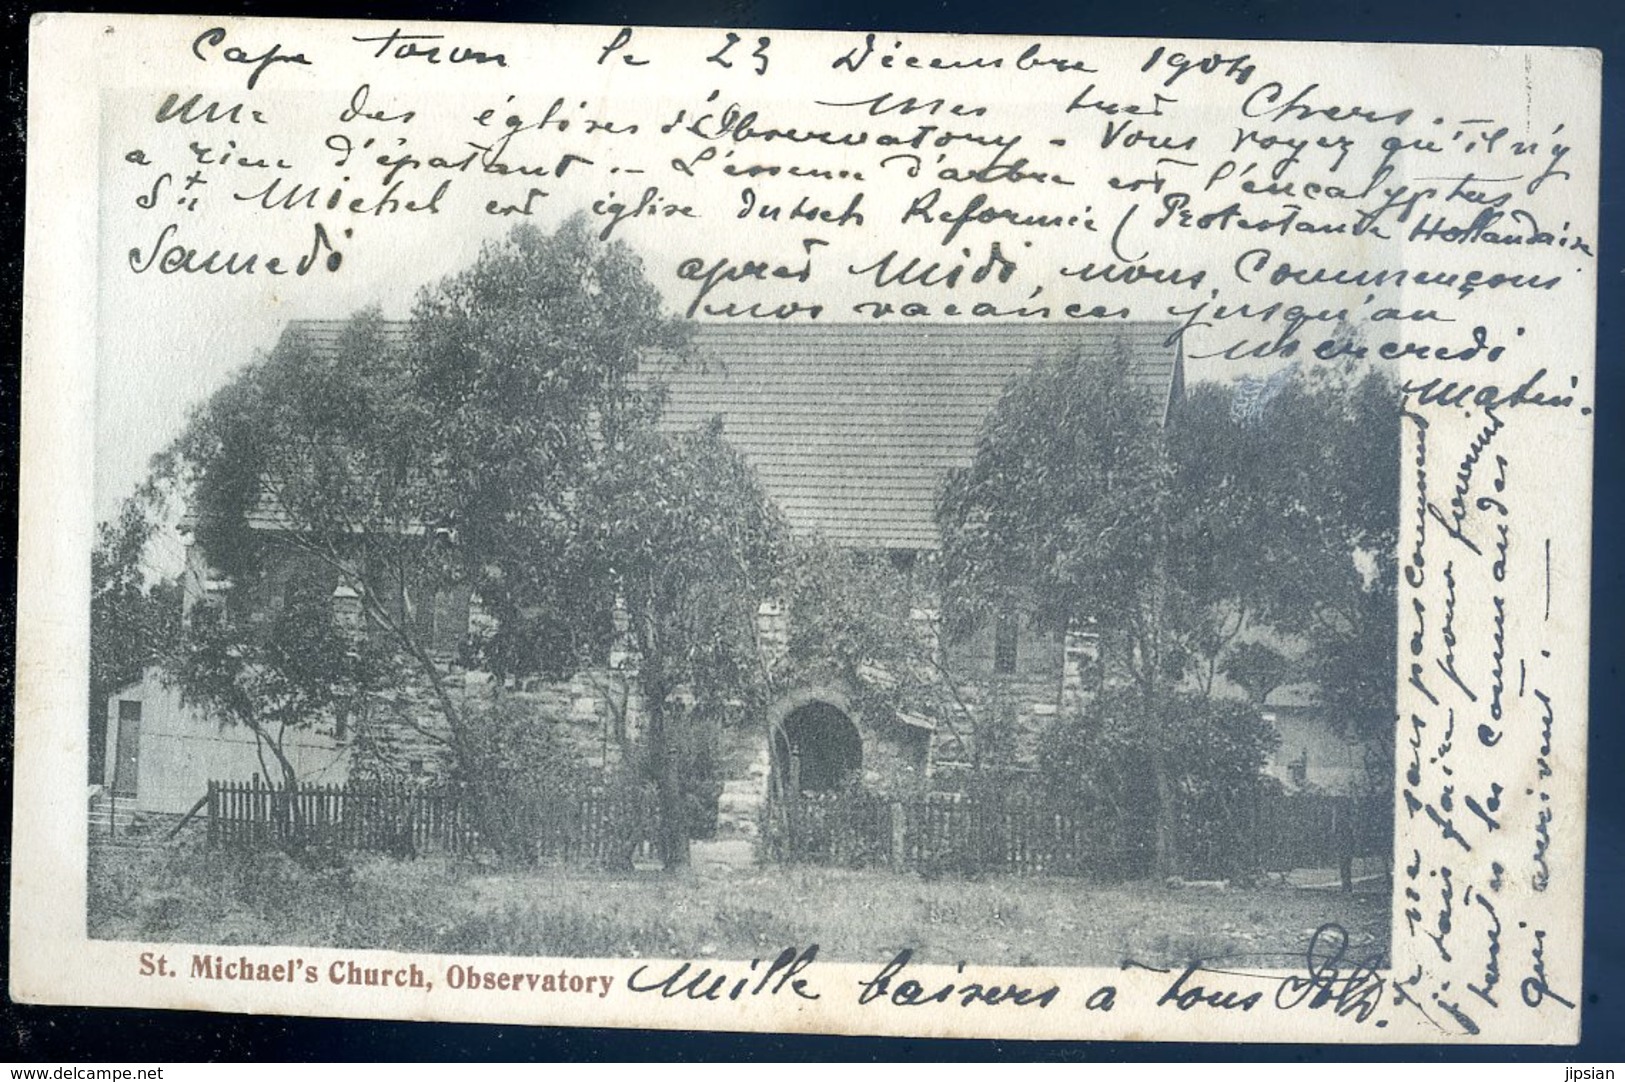 Cape Town le 23 Décembre 1904
Mes très Chers.
Une des églises d'Observatory - Vous voyez qu'il n'y
a rien d'épatant - L'essence d'arbre est l'eucalyptus
St Michel est église Dutsch Reformée (Protestante Hollandaise
Samedi après Midi nous Commençons
nos vacances jusqu'au
mercredi
Matin.
Je ne sais pas comment
je vais faire pour fournir
toutes les commandes
qui arrivent. —
St. Michael's Church, Observatory
Mille baisers à tous
www.delcampe.net
jipsian